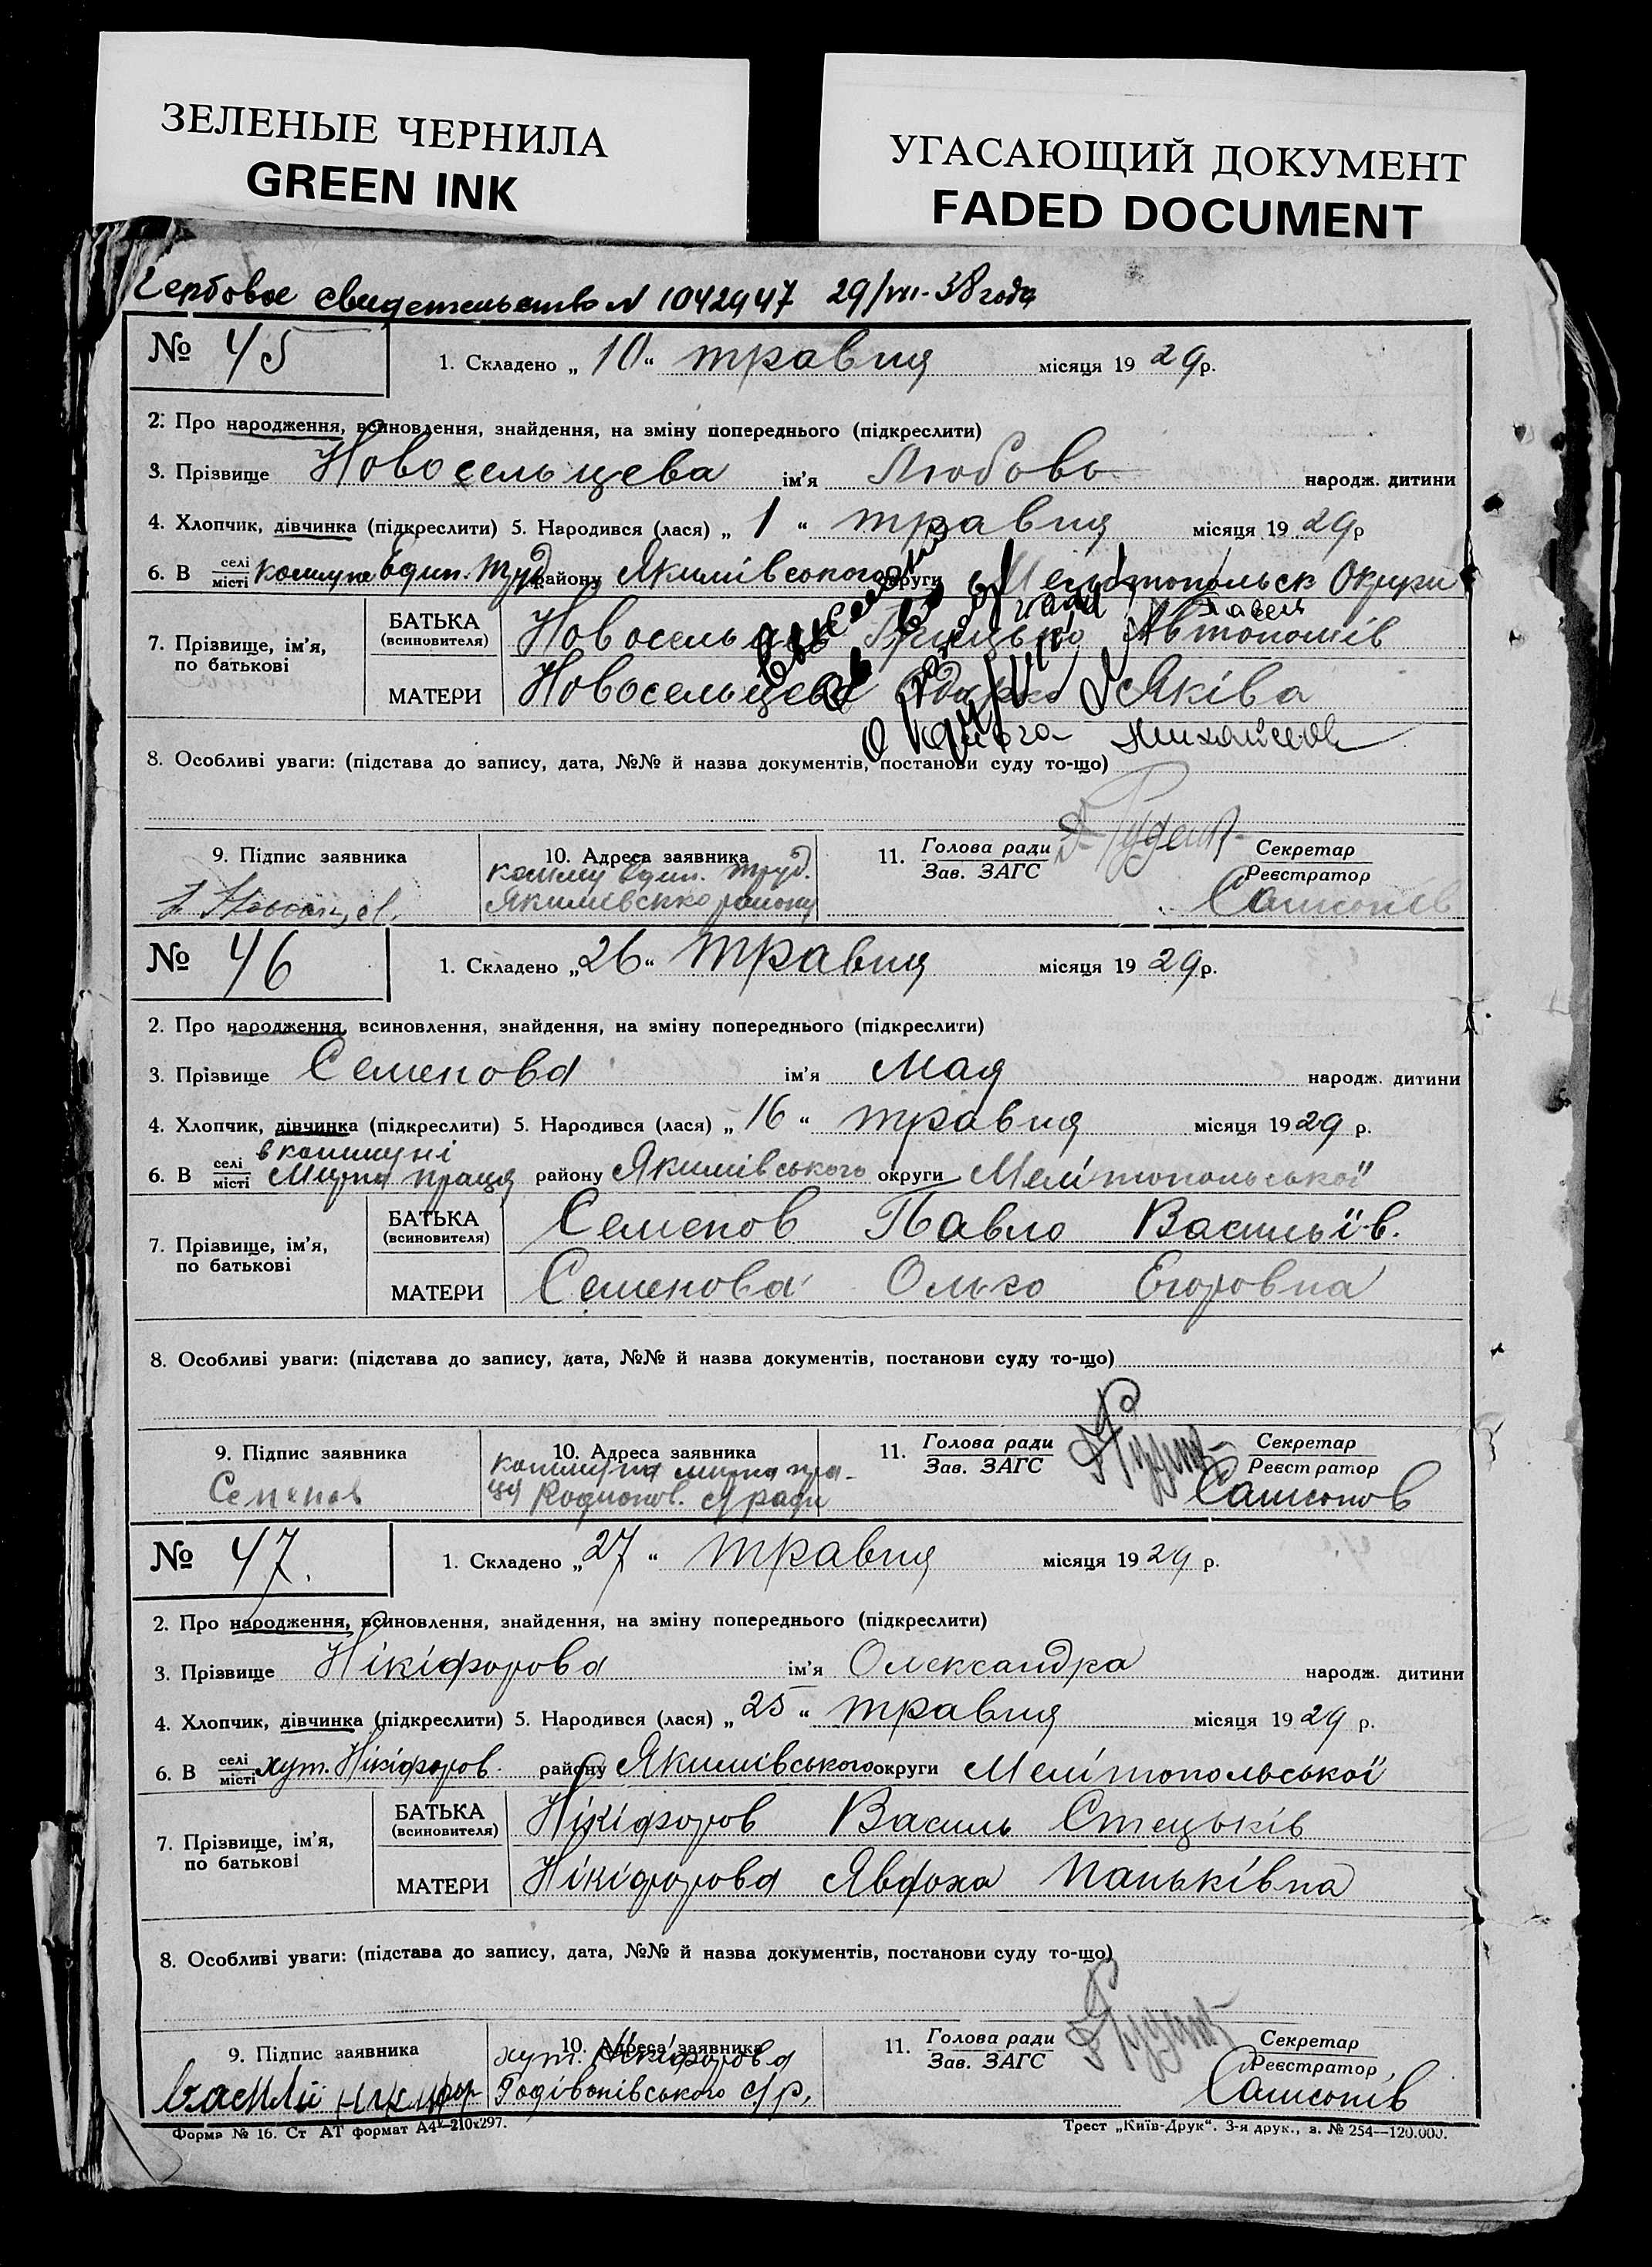 ЗЕЛЕНЫЕ ЧЕРНИЛА
GREEN INK
УГАСАЮЩИЙ ДОКУМЕНТ
FADED DOCUMENT
Гербовое свидетельство N 1042947 29/VII-38 года
№ 45 1. Складено „10“ травня місяця 1929р.
2. Про народження, всиновлення, знайдення, на зміну попереднього (підкреслити)
3. Прізвище Новосельцева ім'я Любовь народж. дитини
4. Хлопчик, дівчинка (підкреслити) 5. Народився (лася) „1“ травня місяця 1929р
6. В селі місті комуне Един. Труд району Якимівського округи Мелітопольск Округи
Павель
7. Прізвище, ім'я, по батькові БАТЬКА (всиновителя) Новосельцев Грицько Автономів
МАТЕРИ Новосельцева Одарка Яківа
Ольга Михайловна
8. Особливі уваги: (підстава до запису, дата, №№ й назва документів, постанови суду то-що)
9. Підпис заявника 10. Адреса заявника 11. Голова ради Зав. ЗАГС Секретар Реєстратор
комму Един. Труд.
Якимівсько району Самсонів
№ 46 1. Складено „26“ травня місяця 1929р.
2. Про народження, всиновлення, знайдення, на зміну попереднього (підкреслити)
3. Прізвище Семенова ім'я Мая народж. дитини
4. Хлопчик, дівчинка (підкреслити) 5. Народився (лася) „16“ травня місяця 1929 р.
в коммуні
6. В селі місті Мирна праця району Якимівського округи Мелітопольської
7. Прізвище, ім'я, по батькові БАТЬКА (всиновителя) Семенов Павло Васильїв.
МАТЕРИ Семенова Ольга Егоровна
8. Особливі уваги: (підстава до запису, дата, №№ й назва документів, постанови суду то-що)
9. Підпис заявника 10. Адреса заявника 11. Голова ради Зав. ЗАГС Секретар Реєстратор
коммуна мирна пра-
Семенов ця Родионов. с/ ради Самсонов
№ 47. 1. Складено „27“ травня місяця 1929 р.
2. Про народження, всиновлення, знайдення, на зміну попереднього (підкреслити)
3. Прізвище Нікіфорова ім'я Олександра народж. дитини
4. Хлопчик, дівчинка (підкреслити) 5. Народився (лася) „25“ травня місяця 1929 р.
6. В селі місті хут. Нікіфоров. району Якимівського округи Мелітопольської
7. Прізвище, ім'я, по батькові БАТЬКА (всиновителя) Нікіфоров Василь Стецьків
МАТЕРИ Нікіфорова Явдоха Панькiвна
8. Особливі уваги: (підстава до запису, дата, №№ й назва документів, постанови суду то-що)
9. Підпис заявника 10. Адреса заявника 11. Голова ради Зав. ЗАГС Секретар Реєстратор
хут. Нікіфорова
Василий Никифор Родівонівського с/р. Самсонів
Форма № 16. Ст АТ формат А4—210х297.
Трест „Київ-Друк“. 3-я друк., з. № 254—120.000.